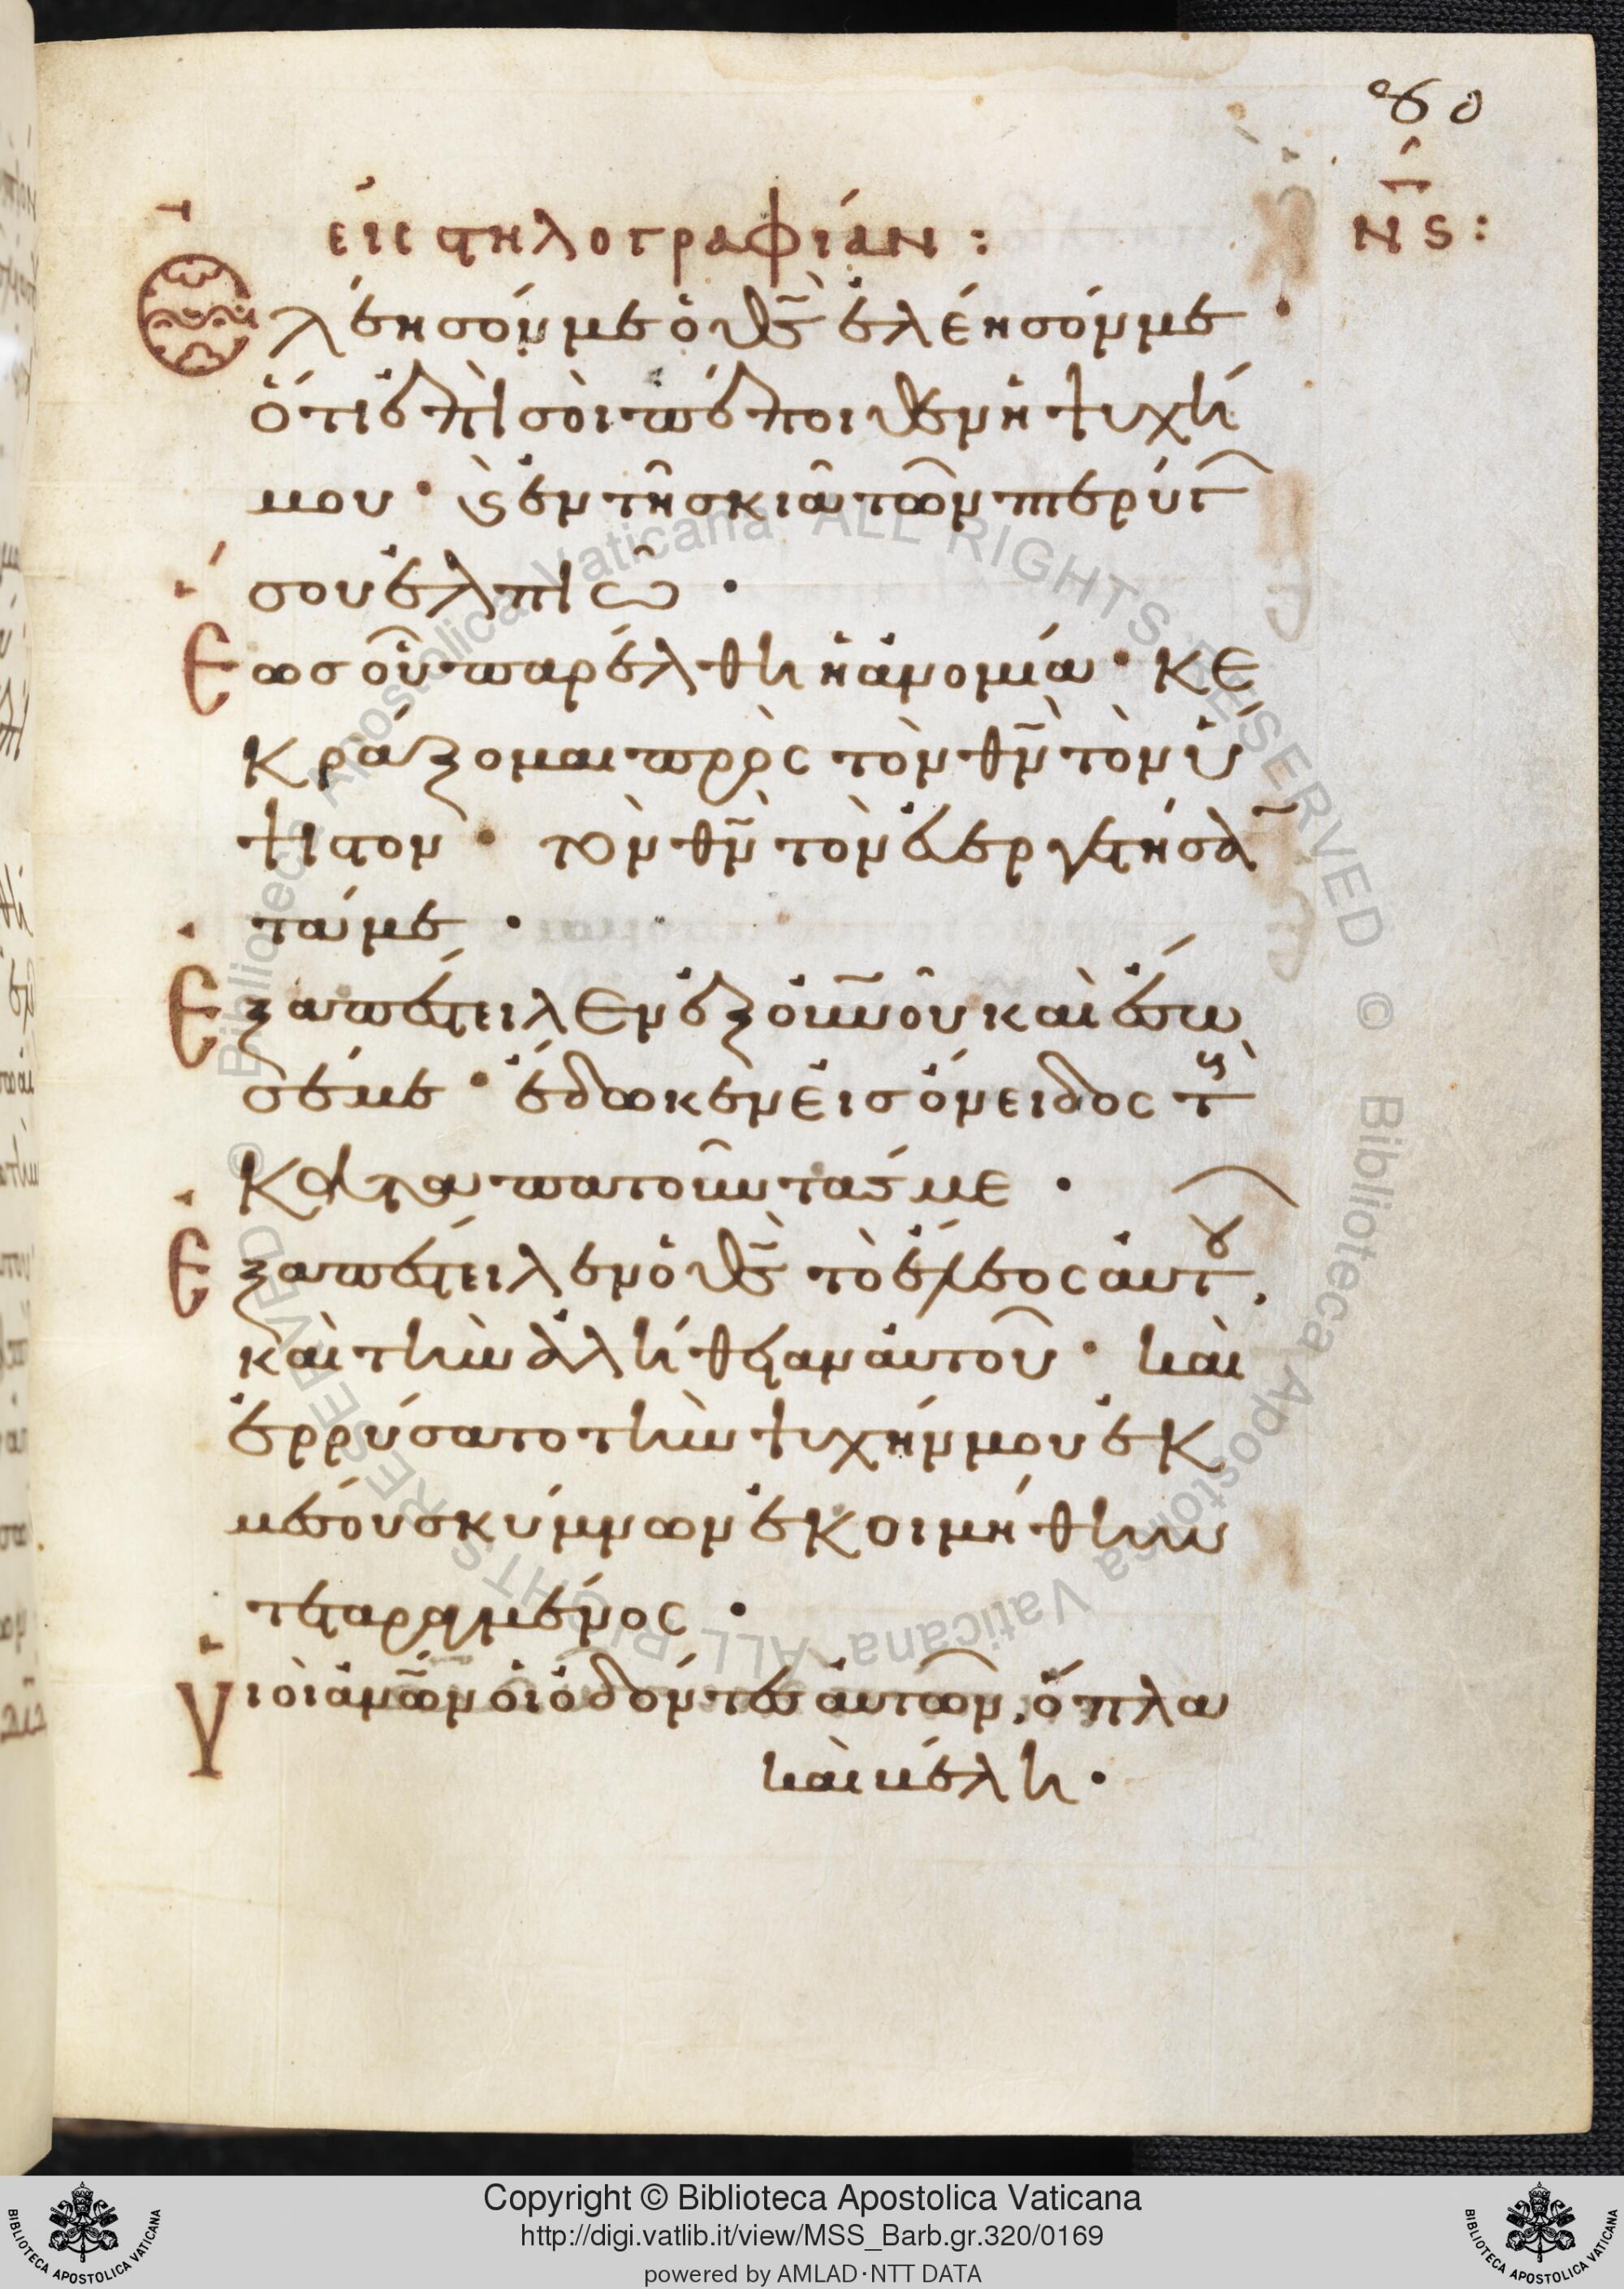 80
εἰς στηλογραφίαν :
Νς :
Ἐλέησόν με ὁ θς ἐλέησόν με ·
ὅτι ἐπὶ σοὶ πέποιθεν ἡ ψυχή
μου · ϗ ἐν τῆ σκιᾶ τῶν πτερύγ
σου ἐλπιῶ ·
Ἕως οὗ παρέλθη ἡ ἀνομία · κε
κράξομαι πρὸς τὸν θν τὸν ὕ
ψιστον · τὸν θν τὸν εὐεργετήσαν
τά με ·
Ἐξαπέστειλεν ἐξ οὐνοῦ καὶ ἔσω
σέ με · ἔδωκεν εἰς ὄνειδος τοὺς
καταπατοῦντάς με ·
Ἐξαπέστειλεν ὁ θς τὸ ἔλεος αὐτοῦ,
καὶ τὴν ἀλήθειαν αὐτοῦ · καὶ
ἐρρύσατο τὴν ψυχήν μου ἐκ
μέσου σκύμνων ἐκοιμήθην
τεταραγμένος ·
Υἱοὶ ἀνῶν οἱ ὀδόντες αὐτῶν, ὅπλα
καὶ βέλη ·
Copyright © Biblioteca Apostolica Vaticana
http://digi.vatlib.it/view/MSS_Barb.gr.320/0169
powered by AMLAD·NTT DATA
BIBLIOTECA APOSTOLICA VATICANA
BIBLIOTECA APOSTOLICA VATICANA
© Biblioteca Apostolica Vaticana ALL RIGHTS RESERVED
© Biblioteca Apostolica Vaticana ALL RIGHTS RESERVED